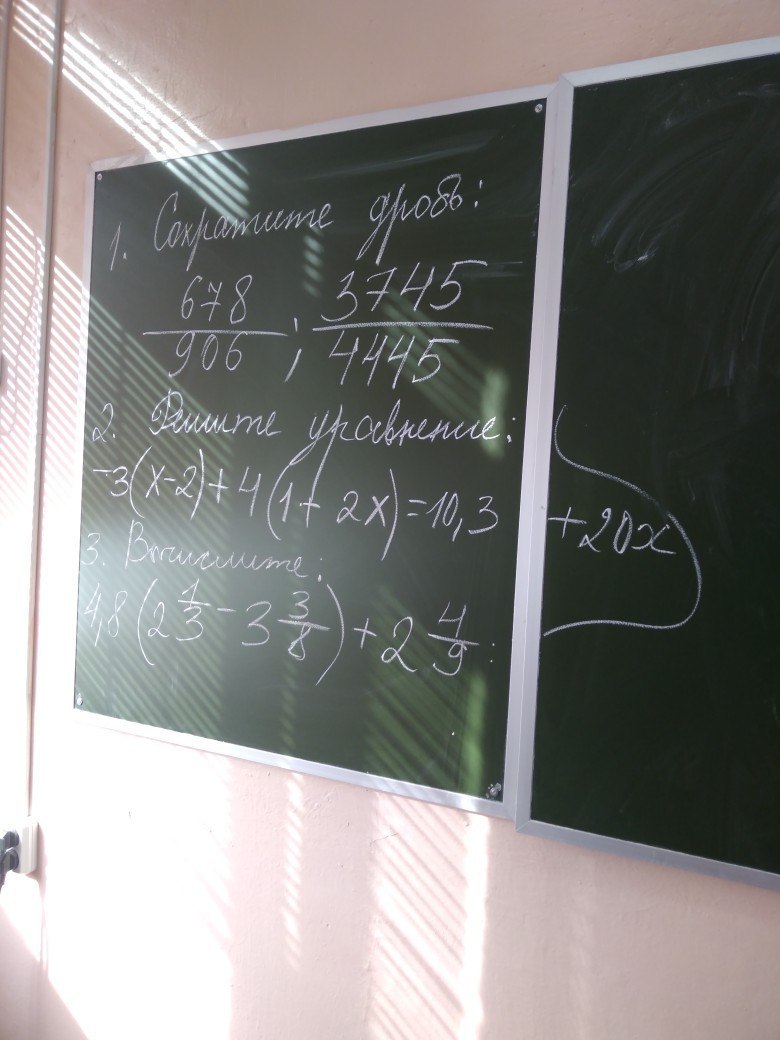 1. Сократите дробь:
678/906 ; 3745/4445
2. Решите уравнение:
-3(x-2)+4(1+2x)=10,3 +20x
3. Вычислите:
4,8(2 1/3 - 3 3/8)+2 4/9 :